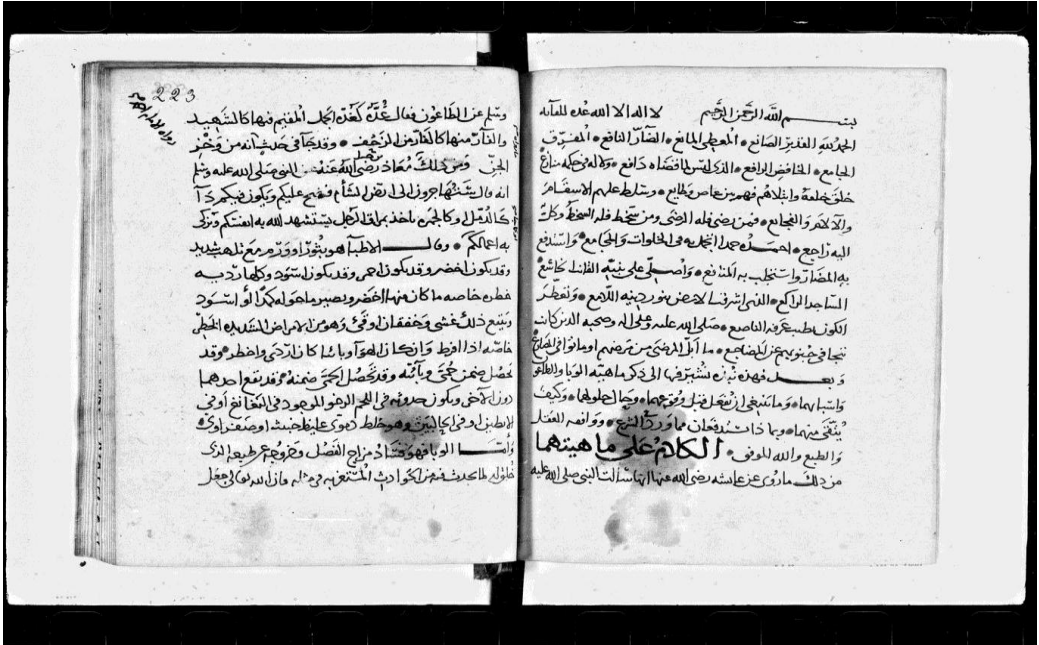 بسم الله الرحمن الرحيم لا اله الا الله عدة للقائه
الحمد لله القدير الصانع المعطي المانع الضار النافع المفرق
الجامع الخافض الرافع الذي ليس لما قضاه دافع ولا له في حكمه منازع
خلق خلقه وابتلاهم فهم بين عاص وطايع وسلط عليهم الاسقام
والالام والفجايع فمن رضي فله الرضى ومن سخط فله السخط وكل
اليه راجع احمده حمدا في الخلوات والجامع واستدفع
به المضار واستجلب به المنافع واصلي على نبيه القانت الخاشع
الساجد الراكع الذي اشرقت الارض بنور دينه اللامع وتعطر
الكون بطيب عرفه الناصع صلى الله عليه وعلى اله وصحبه الذين كانت
تتجافى جنوبهم عن المضاجع ما ابل المرضى من مرضهم او ماتوا في المضاجع
وبعد فهذه نبذة نشير فيها الى ذكر ماهية الوبا والطاعون
واسبابهما وما ينبغي ان يفعل قبل وقوعهما وحال حلولهما وكيف
يتقى منهما وبما ذا يستدفعان مما ورد في الشرع ووافقه العقل
والطبع والله الموفق الكلام على ماهيتهما
من ذلك ما روي عن عايشه رضي الله عنها انها سالت النبي صلى الله عليه
223
وسلم عن الطاعون فقال غدة كغدة الجمل المقيم فيها كالشهيد
والفار منها كالفار من الزحف وقد جا في حديث انه من وخز
الجن ومن ذلك معاذ بن جبل رضي الله عنه النبي صلى الله عليه وسلم
انه قال ستهاجرون الى ارض الشام فتفتح عليكم ويكون فيكم دآ
كالدمل او كالجمره ياخذ بمراق الرجل يستشهد الله به انفسكم ويزكي
به اعمالكم وقال الاطبآ هو بثور او ورم مع تلهب شديد
وقد يكون اخضر وقد يكون احمر وقد يكون اسود وكلها رديه
خطره خاصه ما كان منها اخضر ويصير ما حوله كمدا او اسود
ويتبع ذلك غشي وخفقان او قي وهو من الامراض الشديده الخطر
خاصه اذا افرط وان كان الهوآ وبايا كان اردى واخطر وقد
تحصل ضمن حمى وبآئيه وقد تحصل الحمى ضمنه وقد يقع احدهما
دون الاخر ويكون حدوثه في اللحم الرخو الموجود في المغابن او في
الابطين او في الحالبين وهو خلط دموي غليظ خبيث او صفراوي
وأما الوبا فهو فساد مزاج الفصل وخروجه عن طبعه الذي
خلق له لما يحدث فيه من الحوادث المستغربه في مثله فان الله تعالى جعل